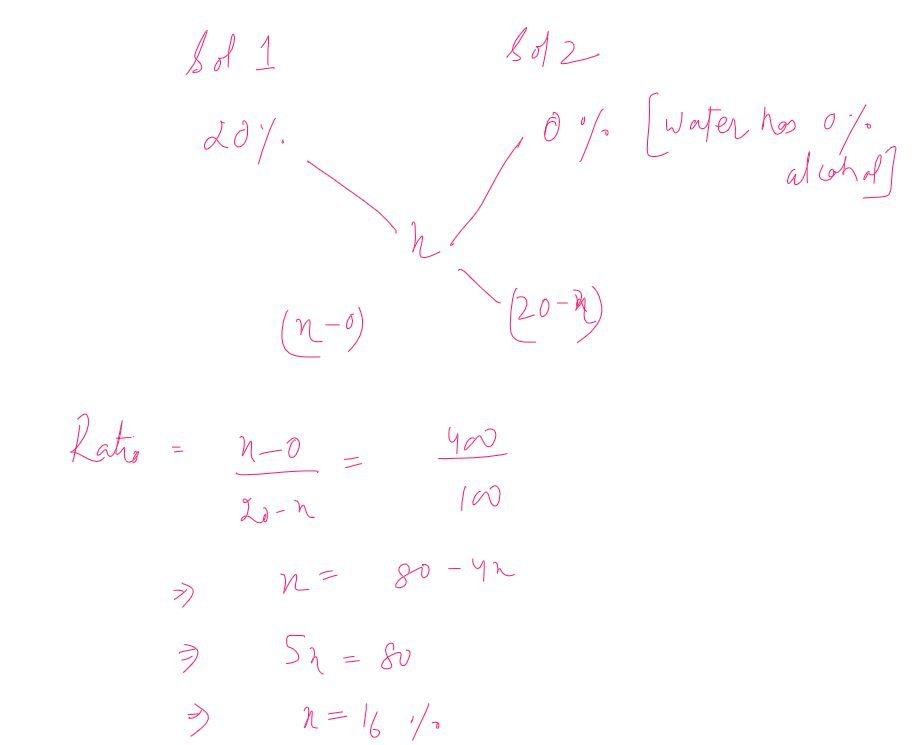 Sol 1 Sol 2
20% 0% [Water has 0%
alcohol]
x
(x-0) (20-x)
Ratio = x-0 / 20-x = 400 / 100
⇒ x = 80 - 4x
⇒ 5x = 80
⇒ x = 16 %